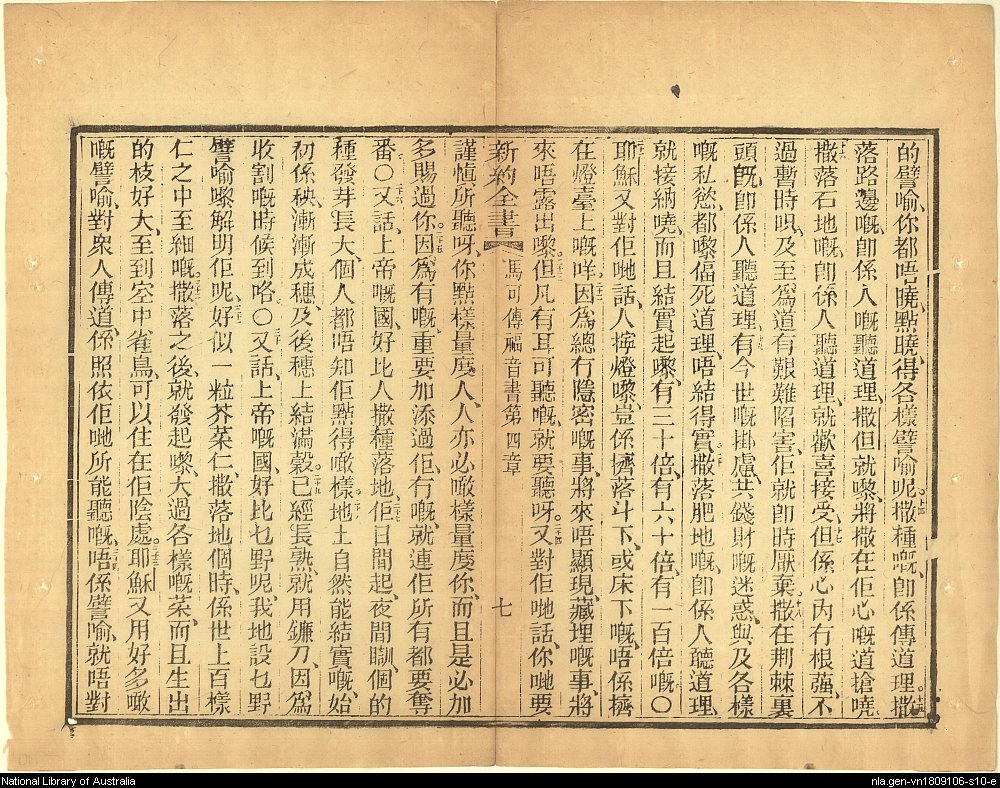 的譬喻、你都唔曉、點曉得各樣譬喻呢。十四撒種嘅、卽係傳道理。十五撒
落路邊嘅、卽係人嘅聽道理、撒但就嚟、將撒在佢心嘅道搶嘵。
十六撒落石地嘅、卽係人聽道理、就歡喜接受、十七但係心內冇根蔃、不
過暫時呮、及至爲道有艱難陷害、佢就卽時厭棄。十八撒在荆棘裏
頭嘅、卽係人聽道理、十九有今世嘅掛慮、共錢財嘅迷惑、與及各樣
嘅私慾、都嚟偪死道理、唔結得實。二十撒落肥地嘅、卽係人聽道理、
就接納嘵、而且結實起嚟、有三十倍、有六十倍、有一百倍嘅。〇
二十一耶穌又對佢哋話、人擰燈嚟、豈係擠落斗下、或床下嘅、唔係擠
在燈臺上嘅咩。二十二因爲總冇隱密嘅事、將來唔顯現、藏埋嘅事、將
來唔露出嚟。二十三但凡有耳可聽嘅、就要聽呀。二十四又對佢哋話、你哋要
新約全書 馬可傳福音書第四章 七
謹愼所聽呀、你點樣量度人、人亦必噉樣量度你、而且是必加
多賜過你。二十五因爲有嘅、重要加添過佢、冇嘅、就連佢所有都要奪
番。〇二十六又話、上帝嘅國、好比人撒種落地、二十七佢日間起、夜間瞓、個的
種發芽長大、個人都唔知佢點得噉樣。二十八地土自然能結實嘅、始
初係秧、漸漸成穗、及後穗上結滿穀。二十九已經長熟、就用鐮刀、因爲
收割嘅時候到咯。〇三十又話、上帝嘅國、好比乜野呢、我地設乜野
譬喻嚟解明佢呢、三十一好似一粒芥菜仁、撒落地個時、係世上百樣
仁之中至細嘅。三十二撒落之後、就發起嚟、大過各樣嘅菜、而且生出
的枝好大、至到空中雀鳥、可以住在佢陰處。三十三耶穌又用好多噉
嘅譬喻、對衆人傳道、係照依佢哋所能聽嘅、三十四唔係譬喻、就唔對
National Library of Australia
nla.gen-vn1809106-s10-e